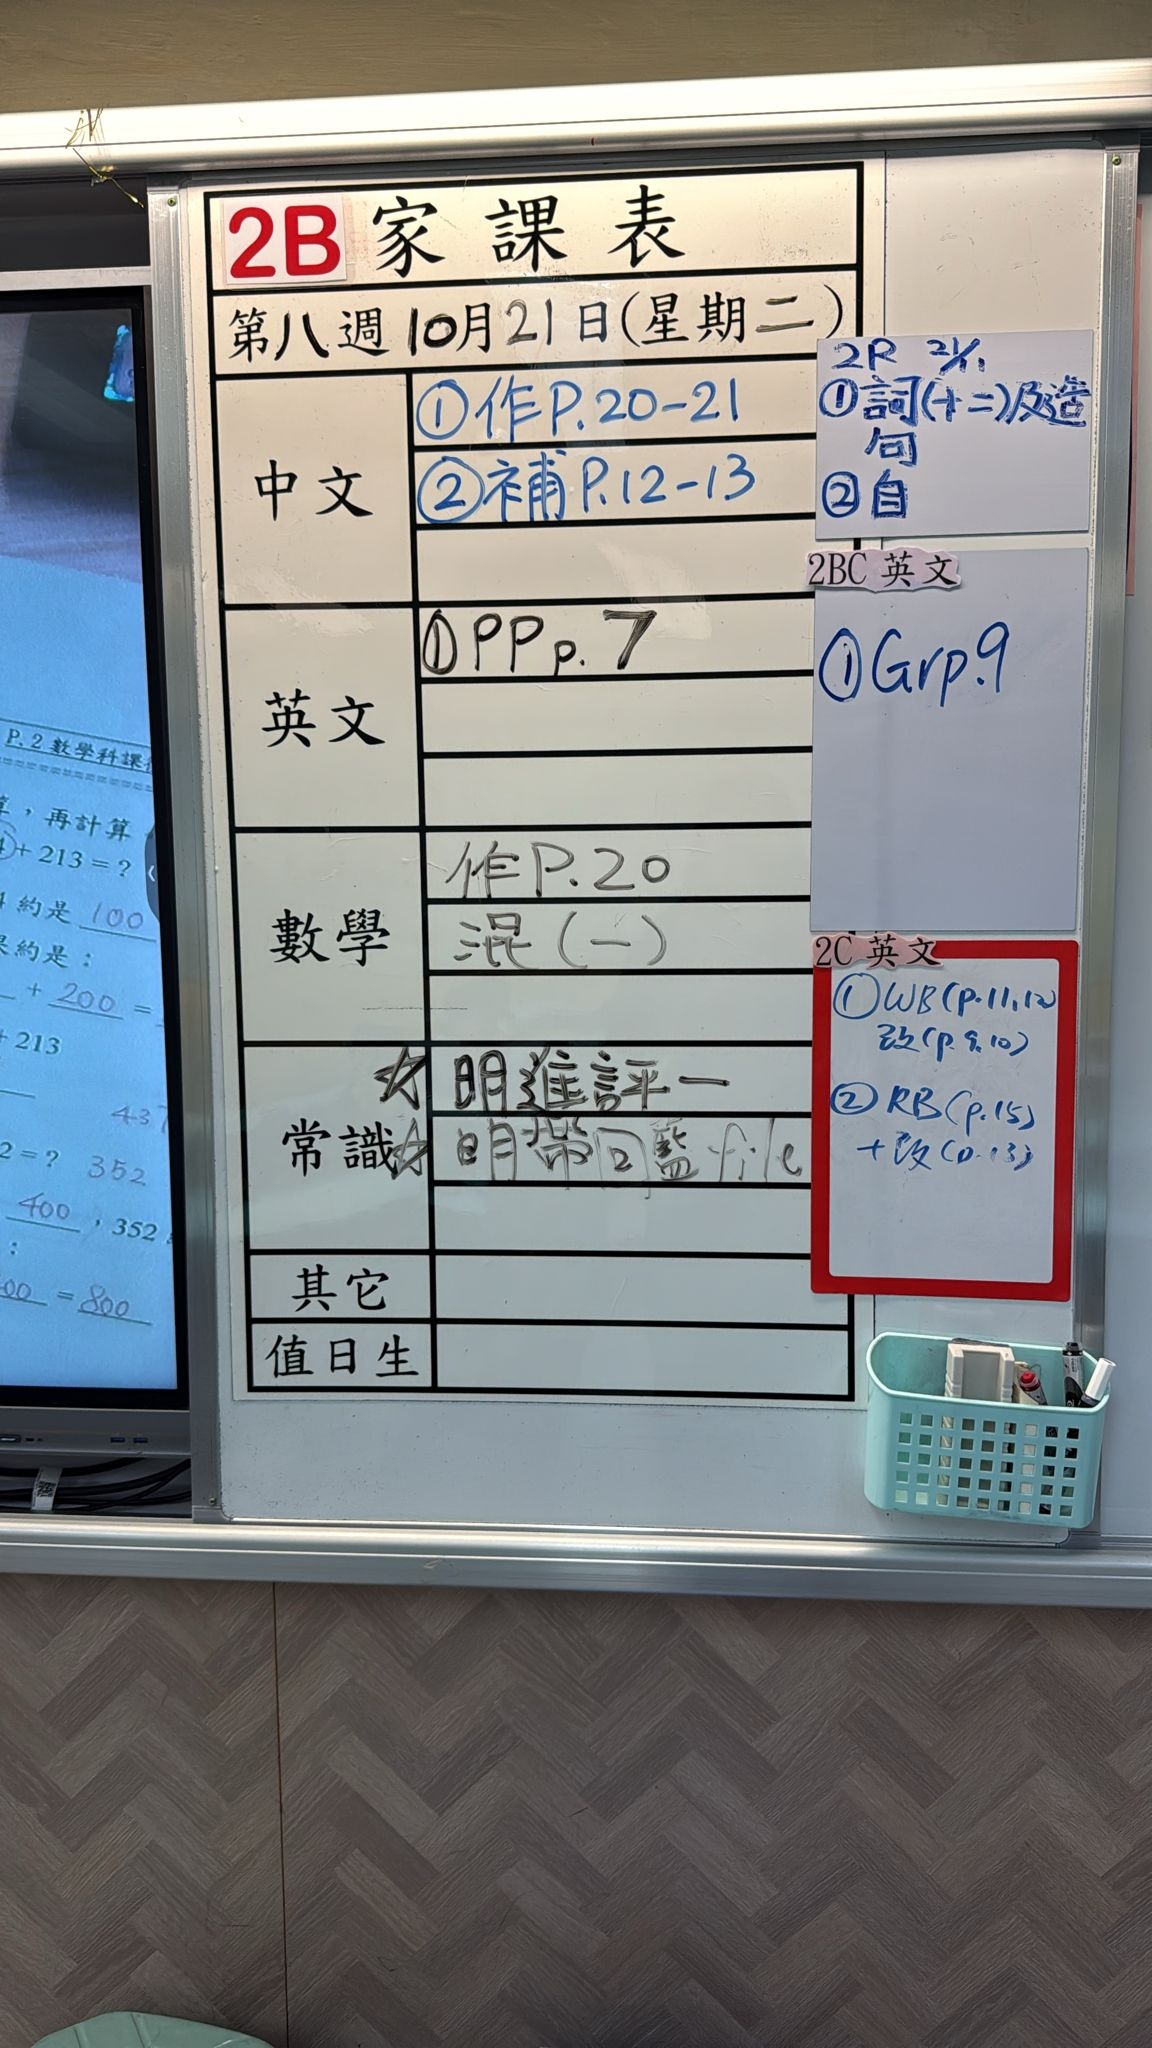 2B 家課表
第八週10月21日(星期二)
中文
①作P.20-21
②補P.12-13
英文
①PP p.7
數學
作P.20
混(一)
常識
☆ 明進評一
☆ 明帶回藍file
其它
值日生
2R 21/
①詞(十二)及造
句
②自
2BC 英文
①Grp.9
2C 英文
①WB(p.11,12
改(p.9,10)
② RB(p.15)
+改(p.13)
P.2 數學科課
,再計算
+ 213 = ?
約是 100
約是:
+ 200 =
+ 213
437
2 = ? 352
400 , 352
:
00 = 800